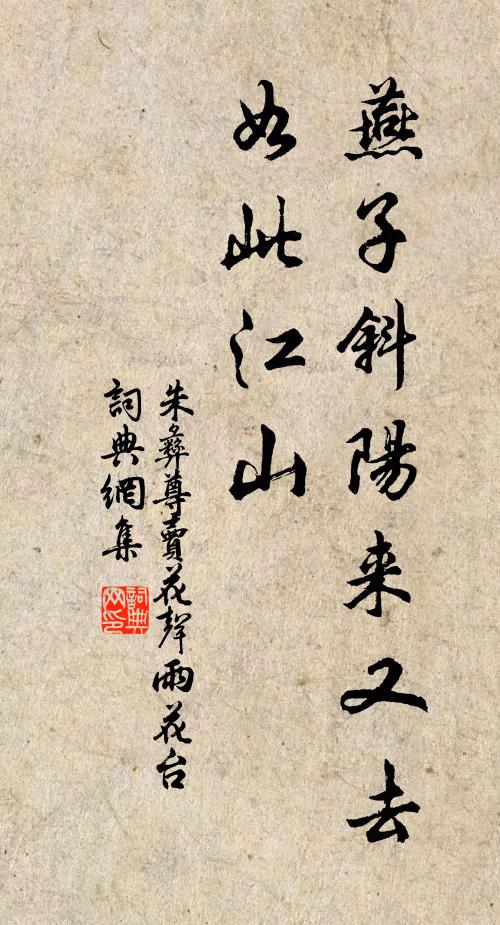 燕子斜陽来又去
如此江山
朱彝尊賣花聲雨花台
詞典網集
詞典網印